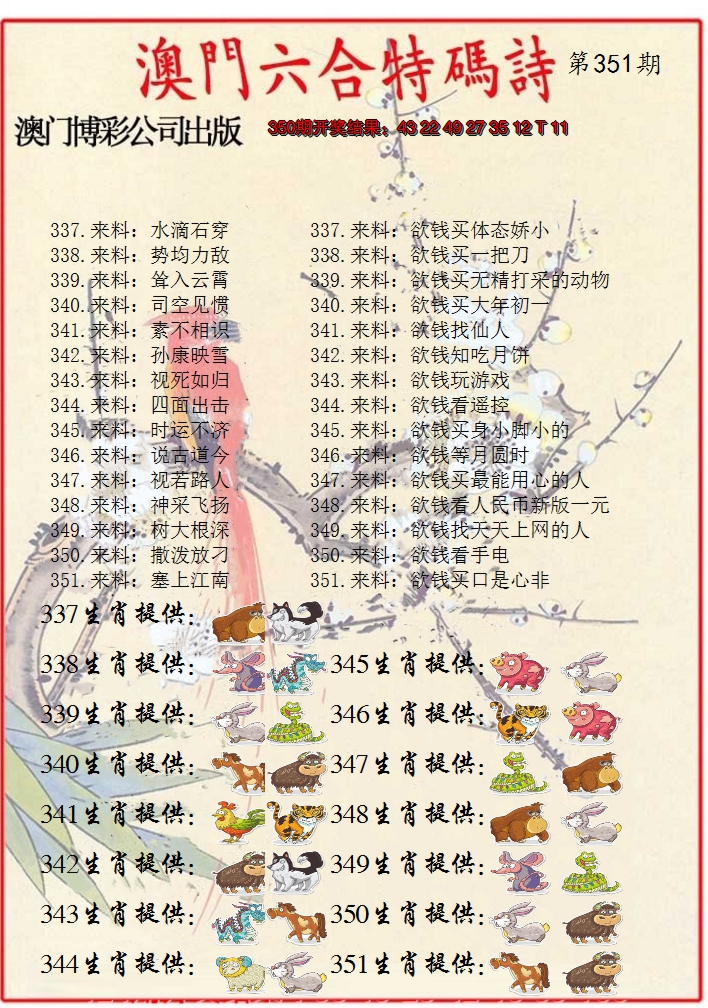 澳門六合特碼詩 第351期
澳门博彩公司出版 350期开奖结果：43 22 49 27 36 12 T 11
337.来料：水滴石穿 337.来料：欲钱买体态娇小
338.来料：势均力敌 338.来料：欲钱买一把刀
339.来料：耸入云霄 339.来料：欲钱买无精打采的动物
340.来料：司空见惯 340.来料：欲钱买大年初一
341.来料：素不相识 341.来料：欲钱找仙人
342.来料：孙康映雪 342.来料：欲钱知吃月饼
343.来料：视死如归 343.来料：欲钱玩游戏
344.来料：四面出击 344.来料：欲钱看遥控
345.来料：时运不济 345.来料：欲钱买身小脚小的
346.来料：说古道今 346.来料：欲钱等月圆时
347.来料：视若路人 347.来料：欲钱买最能用心的人
348.来料：神采飞扬 348.来料：欲钱看人民币新版一元
349.来料：树大根深 349.来料：欲钱找天天上网的人
350.来料：撒泼放刁 350.来料：欲钱看手电
351.来料：塞上江南 351.来料：欲钱买口是心非
337生肖提供：
338生肖提供： 345生肖提供：
339生肖提供： 346生肖提供：
340生肖提供： 347生肖提供：
341生肖提供： 348生肖提供：
342生肖提供： 349生肖提供：
343生肖提供： 350生肖提供：
344生肖提供： 351生肖提供：